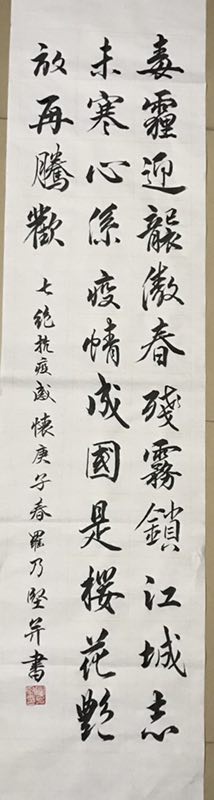 毒霾迎襲傲春殘霧鎖江城志
未寒心係疫情成國是櫻花艷
放再騰歡
七絕抗疫感懷庚子春羅乃堅并書